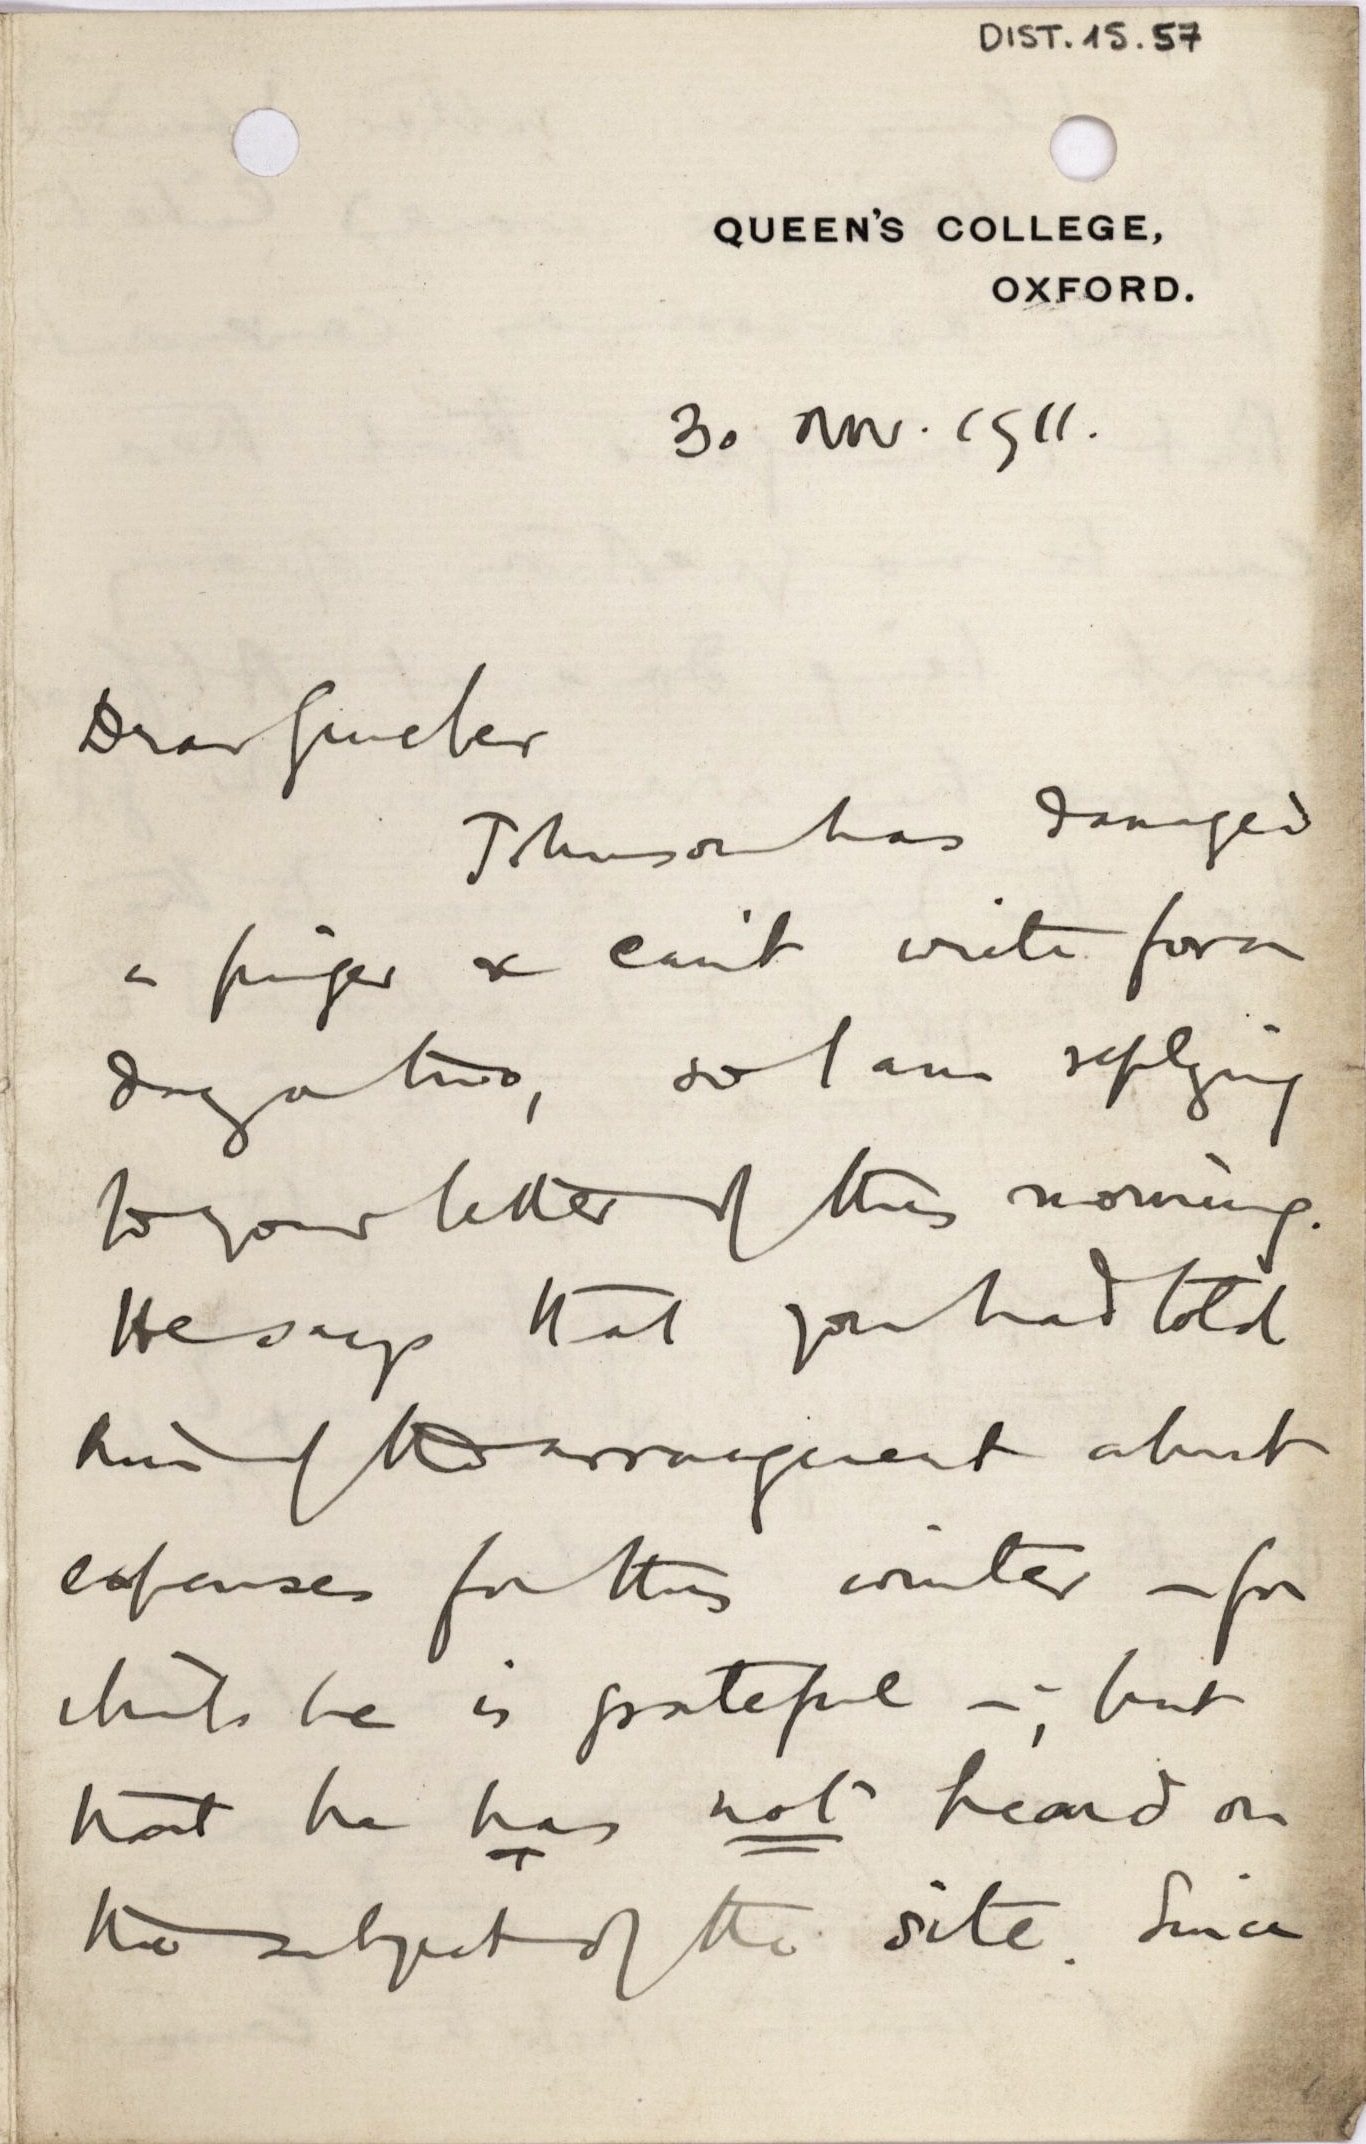 DIST.15.57
QUEEN'S COLLEGE,
OXFORD.
30 Nov. 1911.
Dear
Johnson has damaged
a finger & can't write for a
day or two, so I am replying
to your letter of this morning.
He says that you had told
him of the arrangement about
expenses for this winter – for
which he is grateful –; but
that he has not heard on
the subject of the site. Since